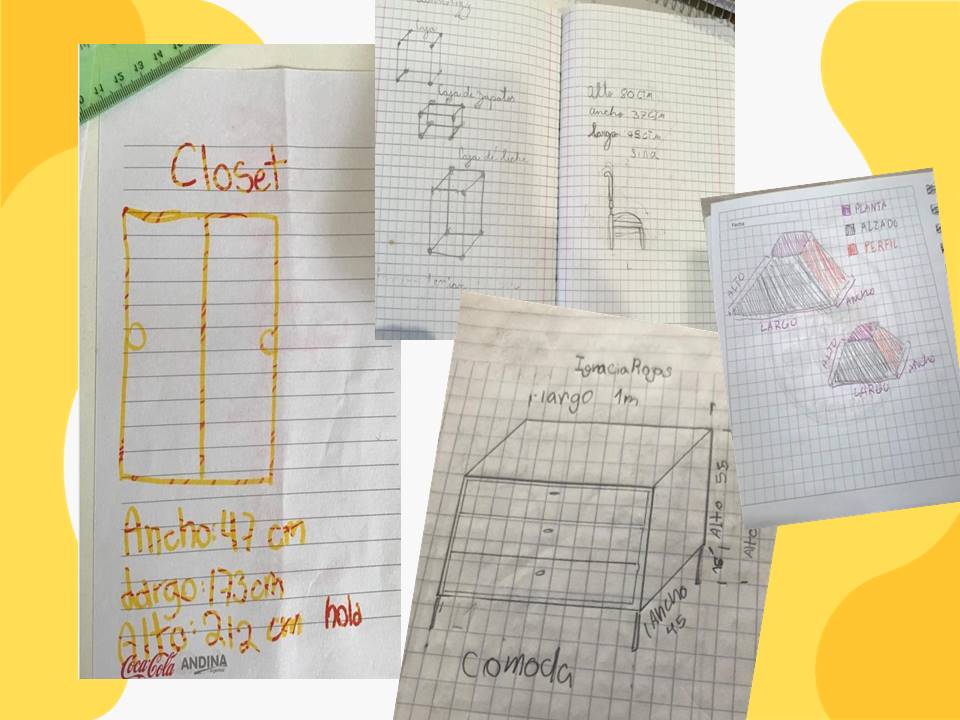 11 12 13 14
Closet
Ancho: 47 cm
Largo: 173 cm
Alto: 212 cm
hola
Coca-Cola ANDINA
Caja
Caja de zapatos
Caja de leche
alto 80 cm
ancho 37 cm
largo 45 cm
silla
Ignacia Rojas
largo 1m
Alto 55
15
Alto
Ancho
45
Comoda
Fecha
PLANTA
ALZADO
PERFIL
ALTO
LARGO
ANCHO
ALTO
LARGO
ANCHO